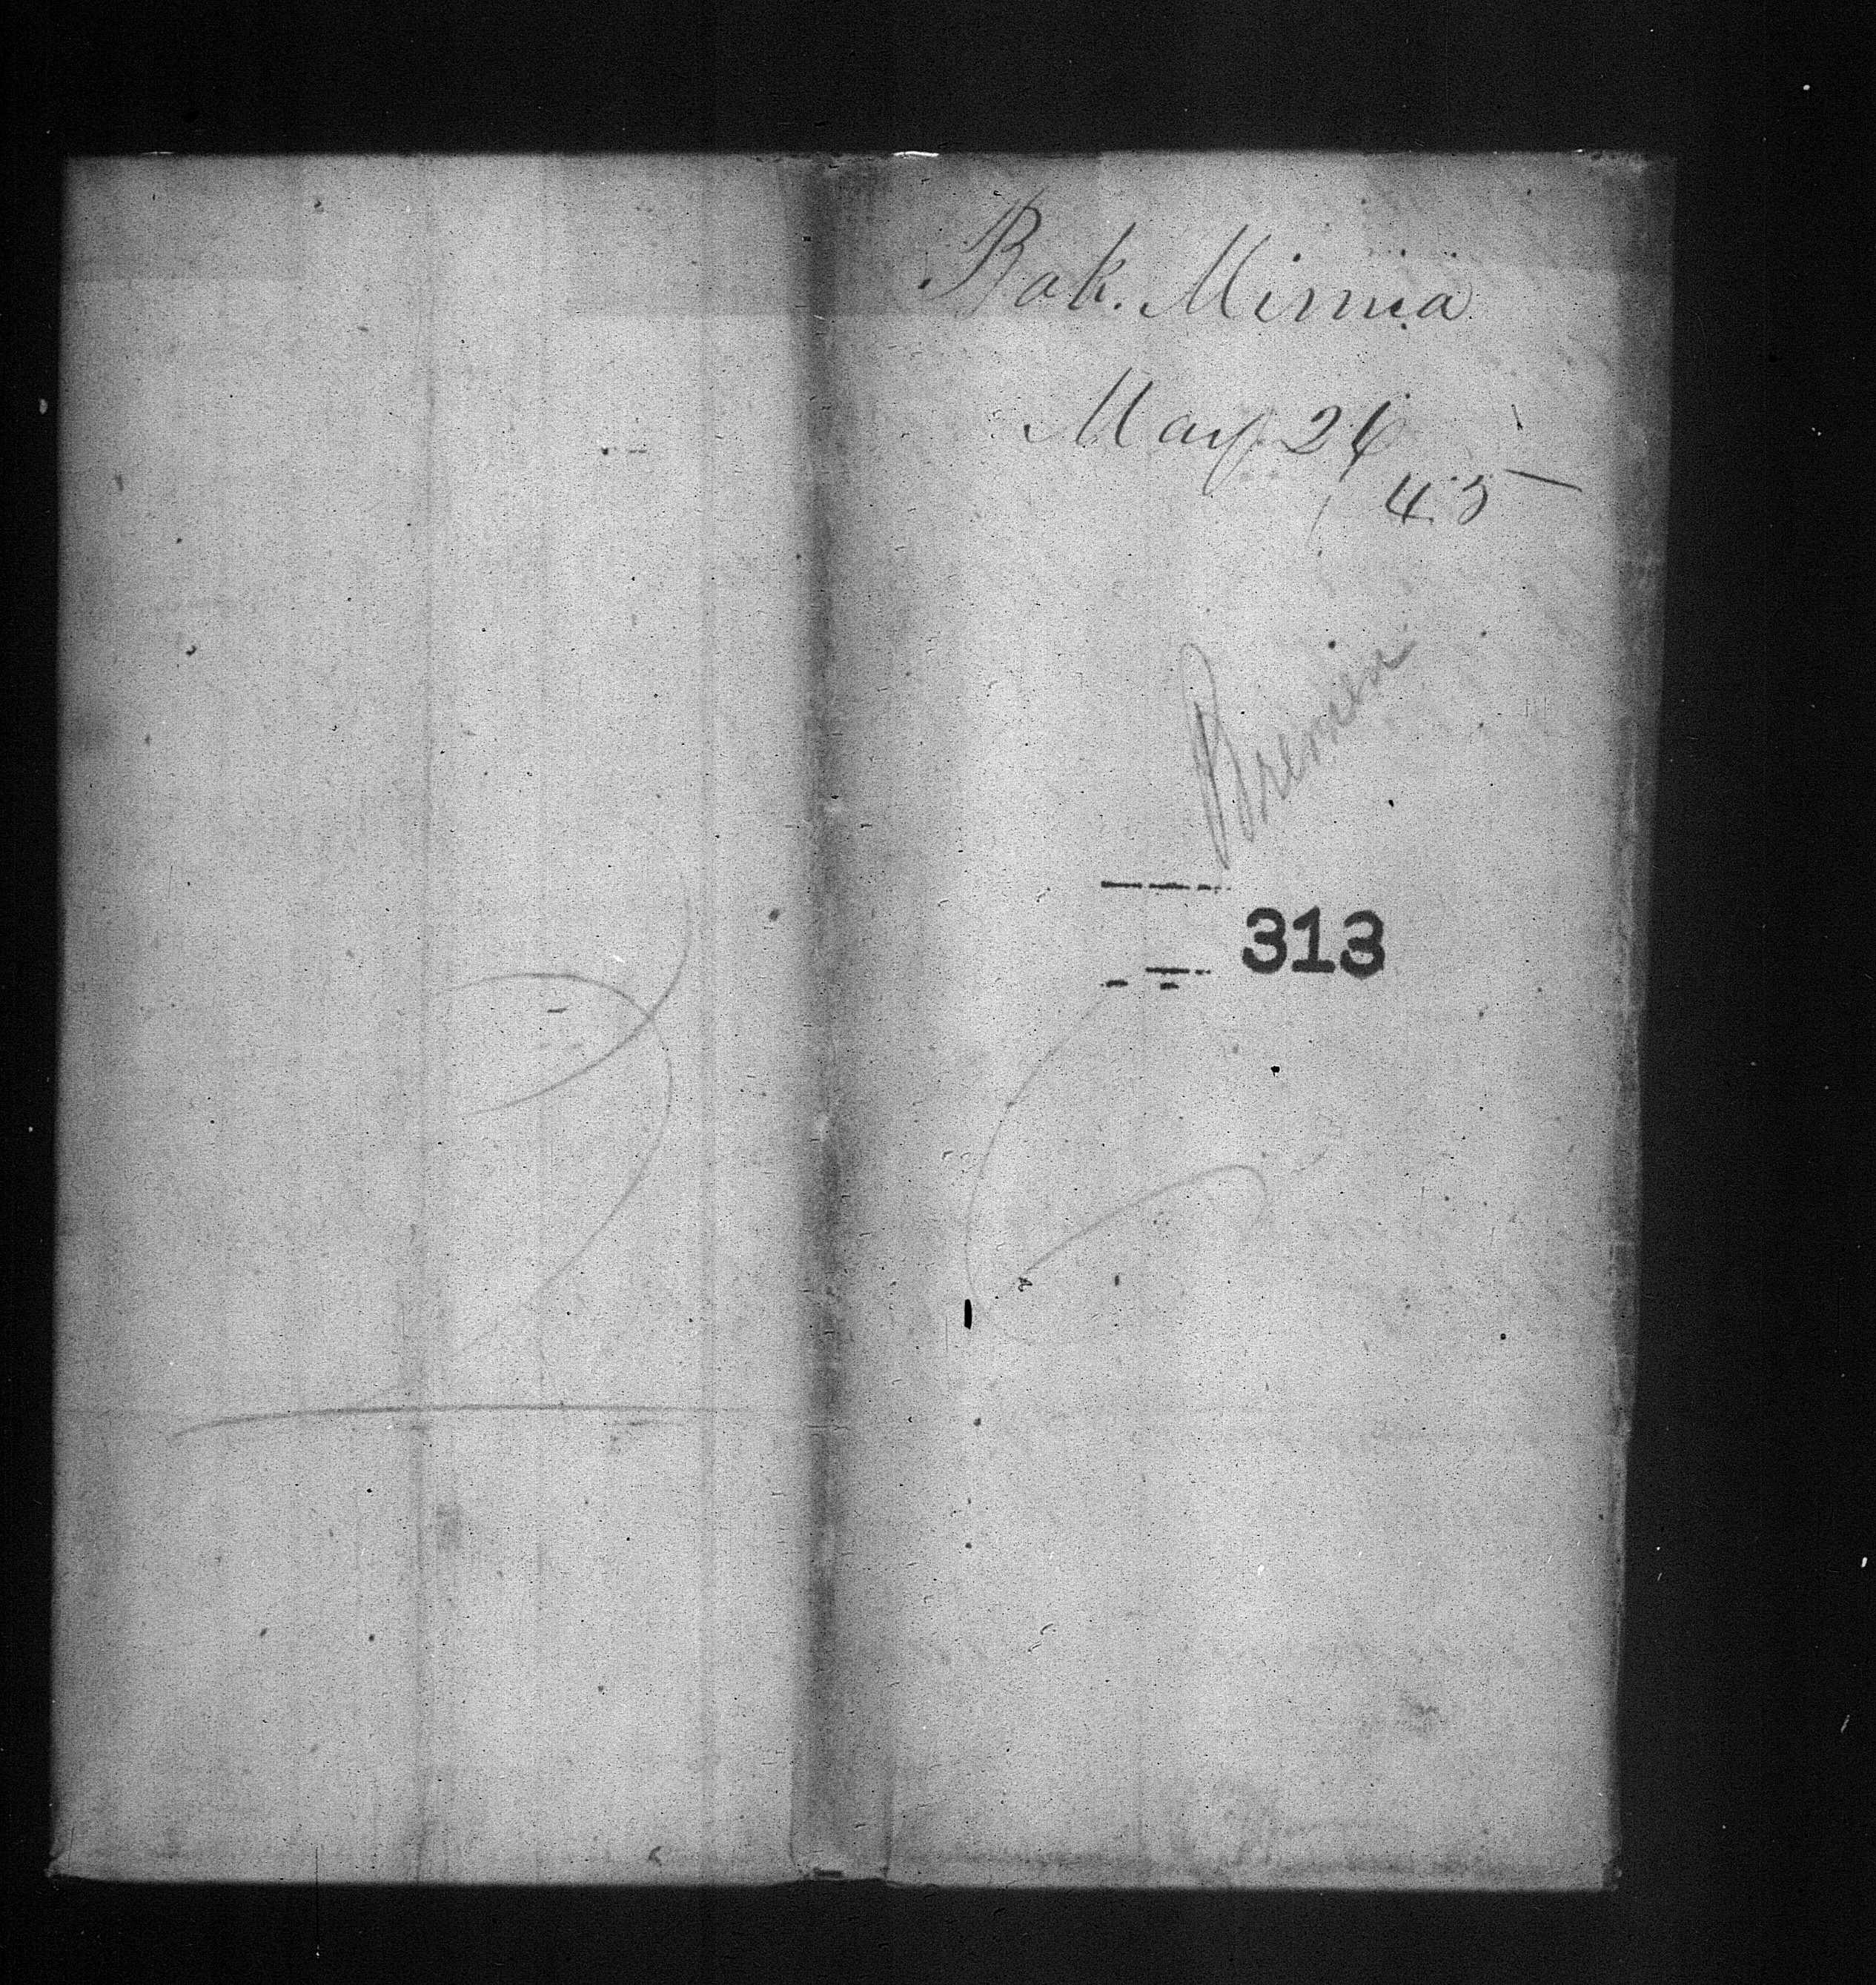 Bak. Minna
May 26
45
Bremen
313